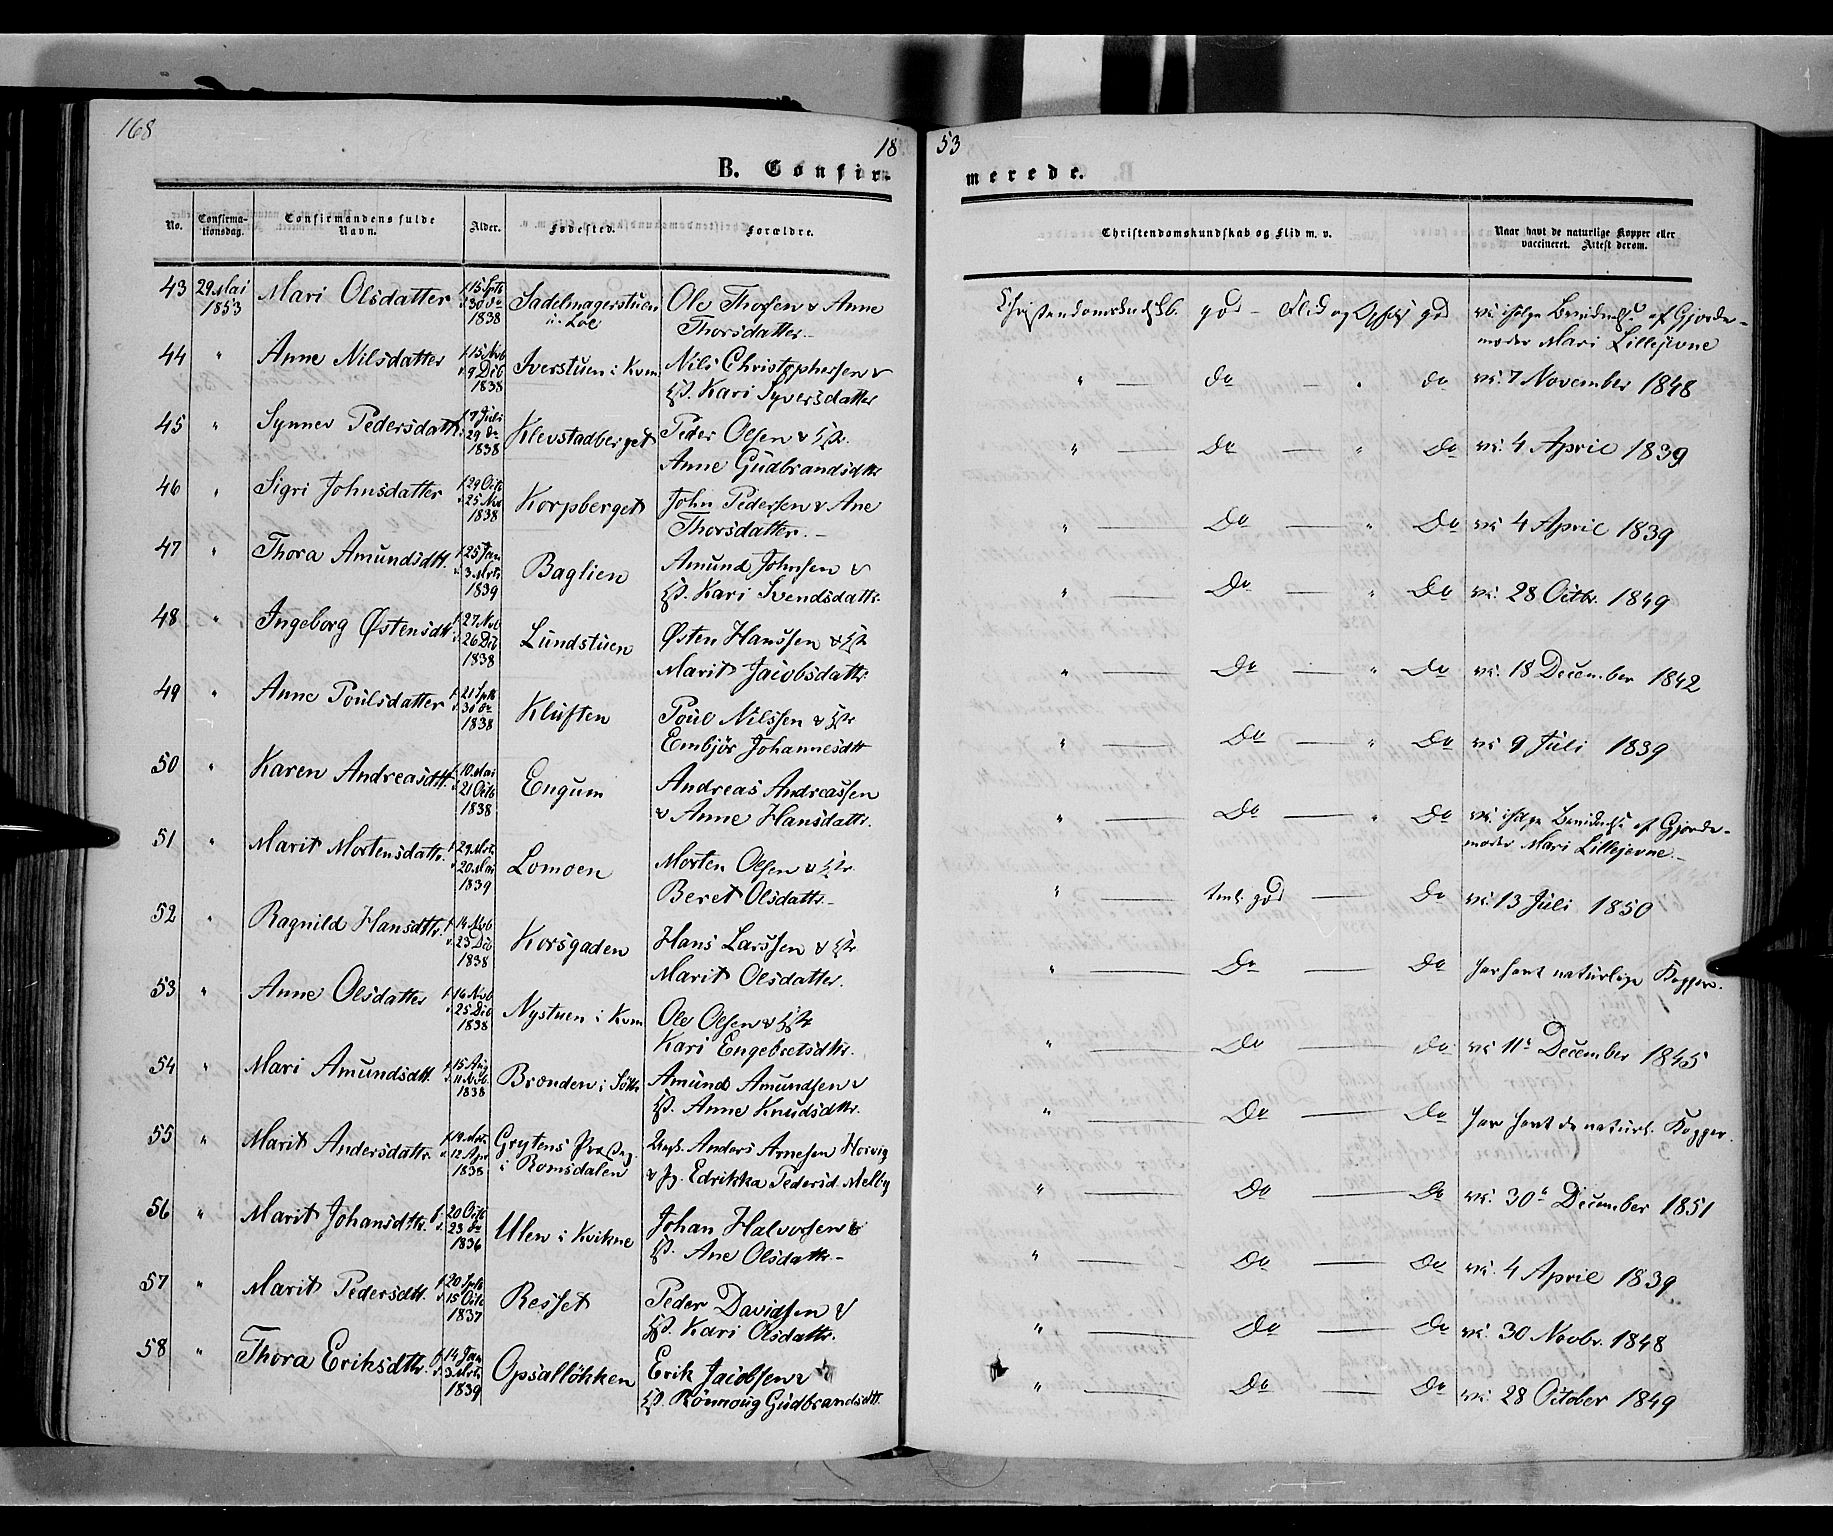 168
18 53
B. Confirmerede.
No. Confirmationsdag. Confirmandens fulde Navn. Alder. Fødested. Forældre. Christendomskundskab og Flid m. v. Naar havt de naturlige Kopper eller vaccineret. Attest derom.
43 29 Mai 1853 Mari Olsdatter f. 15 Sptb d. 30 do 1838 Sadelmagerstuen i Loe Ole Thorsen & Anne Thorsdatter.- Christendomskundskb. god - Flid og god vc. ifølge af Gjordemoder Mari Lillejevne
44 " Anne Nilsdatter f. 15 Nvb d. 9 Dcb 1838 Iverstuen i Kvm Nils Christophersen & Hst. Kari Syversdatter " — do — " do vc. 7 November 1848
45 " Synnev Pedersdattr f. 7 Juli 29 do 1838 Klevstadberget Peder Olsen & Hst. Anne Gudbrandsdtter " — do — " do vc. 4 April 1839
46 " Sigri Johnsdatter f. 29 Octb d. 25 Nvb 1838 Korpberget John Pedersen & Ane Thorsdatter.- " — Do — " Do vc 4 April 1839
47 " Thora Amundsdtt. f. 25 Jan d. 3 Mrts 1839 Baglien Amund Johnsen & Hst. Kari Svendsdattr. " — Do — " Do vc. 28 Octbr. 1849
48 " Ingeborg Østensdtt f. 27 Nvb d. 26 Dcb 1838 Lundstuen Østen Hanssen & Hst Marit Jacobsdattr. " — Do — " Do vc. 18 December 1842
49 " Anne Poulsdatter f. 21 Sptb d. 30 do 1838 Kluften Poul Nilssen & Hst. Embjør Johannesdtt " — Do — " Do vc. 9 Juli 1839
50 " Karen Andreasdtt. f. 10 Mai d. 21 Octb 1838 Engum Andreas Andreassen & Anne Hansdattr. " — Do — " Do vc. ifølge af Gjordemoder Mari Lillejevne.-
51 " Marit Mortensdattr. f. 29 Mrts d. 20 Mai 1839 Lomoen Morten Olsen & Hst. Beret Olsdattr.- " — god — Do vc. 13 Juli 1850
52 " Ragnild Hansdttr. f. 14 Nvb d. 23 Dcb 1838 Korsgaden Hans Larssen & Hst. Marit Olsdatter. " — Do — Do har havt naturlige Kopper.
53 " Anne Olsdatter f. 16 Nvb d. 25 Dcb 1838 Nystuen i Kvm Ole Olsen & Hst Kari Engebretsdttr. " — Do — Do vc 11te December 1845
54 " Mari Amundsdtt. f. 15 Aug d. 11 Nvb. 1838 Brænden i Amund Amundsen & Hst. Anne Knudsdttr. " — Do — Do har havt de naturl. Kopper.
55 " Marit Andersdattr. f. 14 Mrts d. 12 Apr 1838 Grytens i Romsdalen Ungk. Anders Arnesen Horvig & P. Edrikka Pedersd. Melby " — Do — Do vc. 30te December 1851
56 " Marit Johansdttr. f. 20 Octb d. 23 do 1836 Ulen i Kvikne Johan Halvorsen & Hst. Ane Olsdattr.- " — Do — Do vc. 4 April 1839
57 " Marit Pedersdtt. f. 20 Sptb d. 15 Octb 1837 Resset Peder Davidsen & Hst. Kari Olsdattr. " — Do — Do vc. 30 Novbr. 1848
58 " Thora Eriksdttr. f. 14 Jan d. 3 Mrts 1839 Opsalløkken Erik Jacobsen & Hst. Rønnoug Gudbrandsdtt. " — Do — Do vc. 28 October 1849